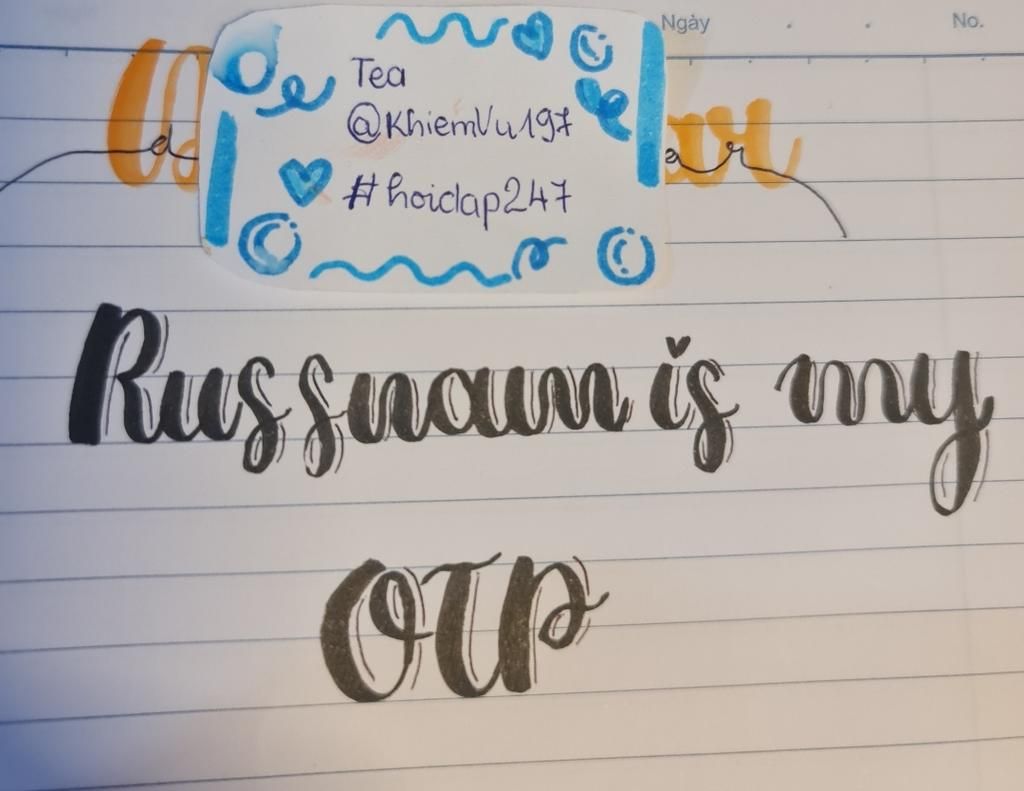 Ngày No.
Tea
@KhiemVu197
#hoidap247
Russnam is my
OTP